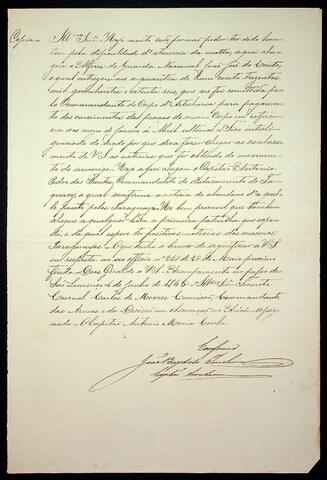 Copia = Illmo Snr. = Hoje muito cedo, por não poder ter sido hon-
tem pela difficuldade d'atravessar da matta, aqui che-
gou o Alferes da Guarda Nacional João José do Couto,
o qual entregou-me a quantia de hum conto trezentos
mil
pelo Commandante do Corpo d'Artilharia para pagamen-
to dos vencimentos das praças do mesmo Corpo em referen-
cia aos mezes de Janeiro a Abril ultimos = Fico intelli-
genciado do modo por que devo fazer chegar ao conheci-
mento de V.S. as noticias que for obtendo do movimen-
to do inimigo. Hoje aqui chegou o Capitão Antonio
Pedro dos Santos, Commandante do Destacamento do Ta-
quary, o qual confirma a noticia do abandono d'aquel-
le ponto pelos Paraguayos. He bem provavel que tambem
chegue a qualquer hora a primeira patrulha que expe-
di, e da qual espero ter positivas noticias dos mesmos
Paraguayos. = O que tenho a honra de significar a V.S.
em resposta ao seo officio nº 251 de 29 de Maio proximo
findo. = Deos Guarde a V.S. = Acampamento
São Lourenço 4 de Junho de 1866 = Illmo Snr. Tenente
Coronel Carlos de Moraes Camisão, Commandante
das Armas e das Forças em observação no = Assig-
nado = O Capitão Antonio Maria Coelho.
Conforme
João Baptista
Capitão